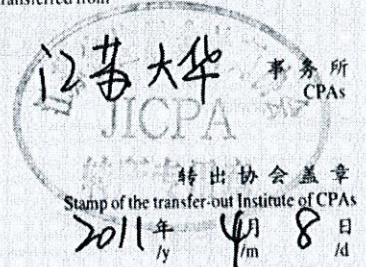 transferred from
江苏大华 事务所
CPAs
JICPA
转出协会盖章
Stamp of the transfer-out Institute of CPAs
2011 年 4 月 8 日
/y /m /d